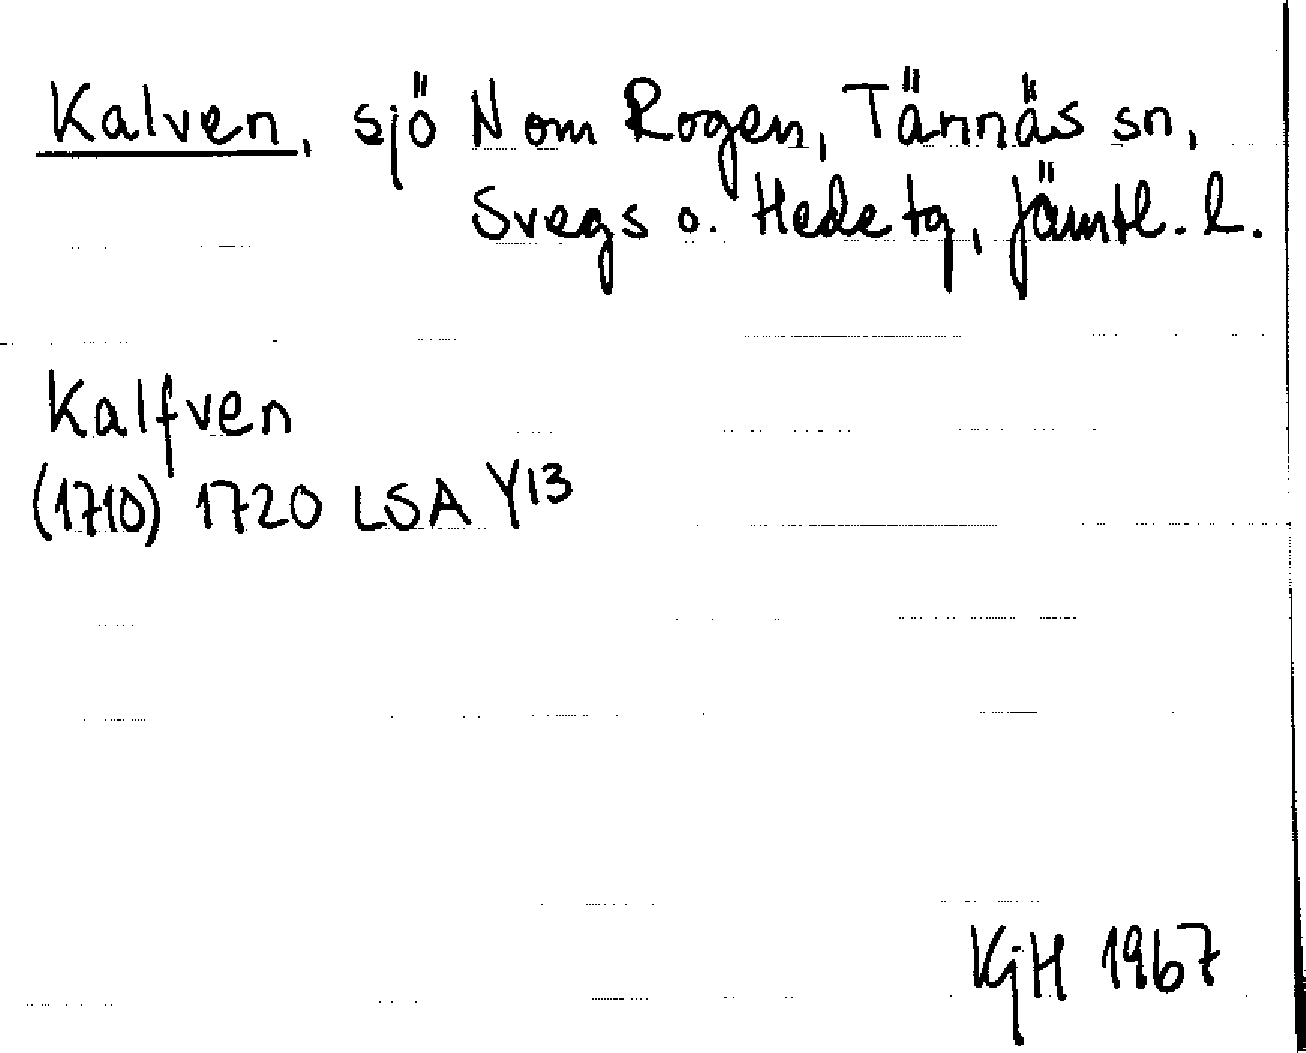 Kalven, sjö N om Rogen, Tännäs sn,
Svegs o. Hede tg, Jämtl. l.
Kalfven
(1710) 1720 LSA Y13
KjH 1967